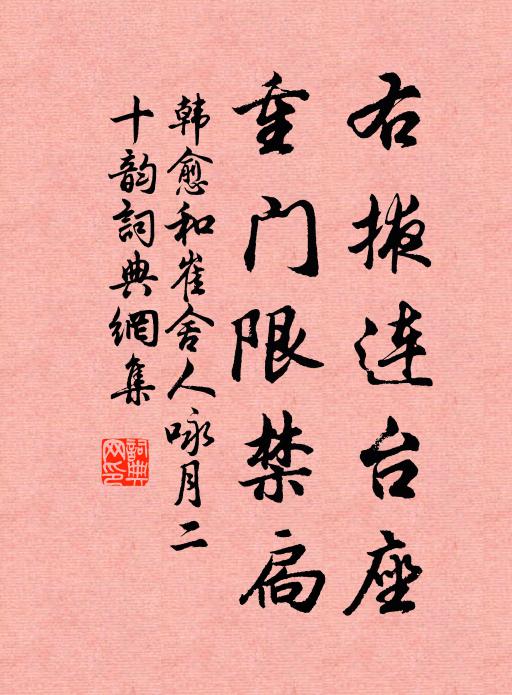 右掖连台座
重门限禁扃
韩愈和崔舍人咏月二
十韵詞典網集
詞典网印